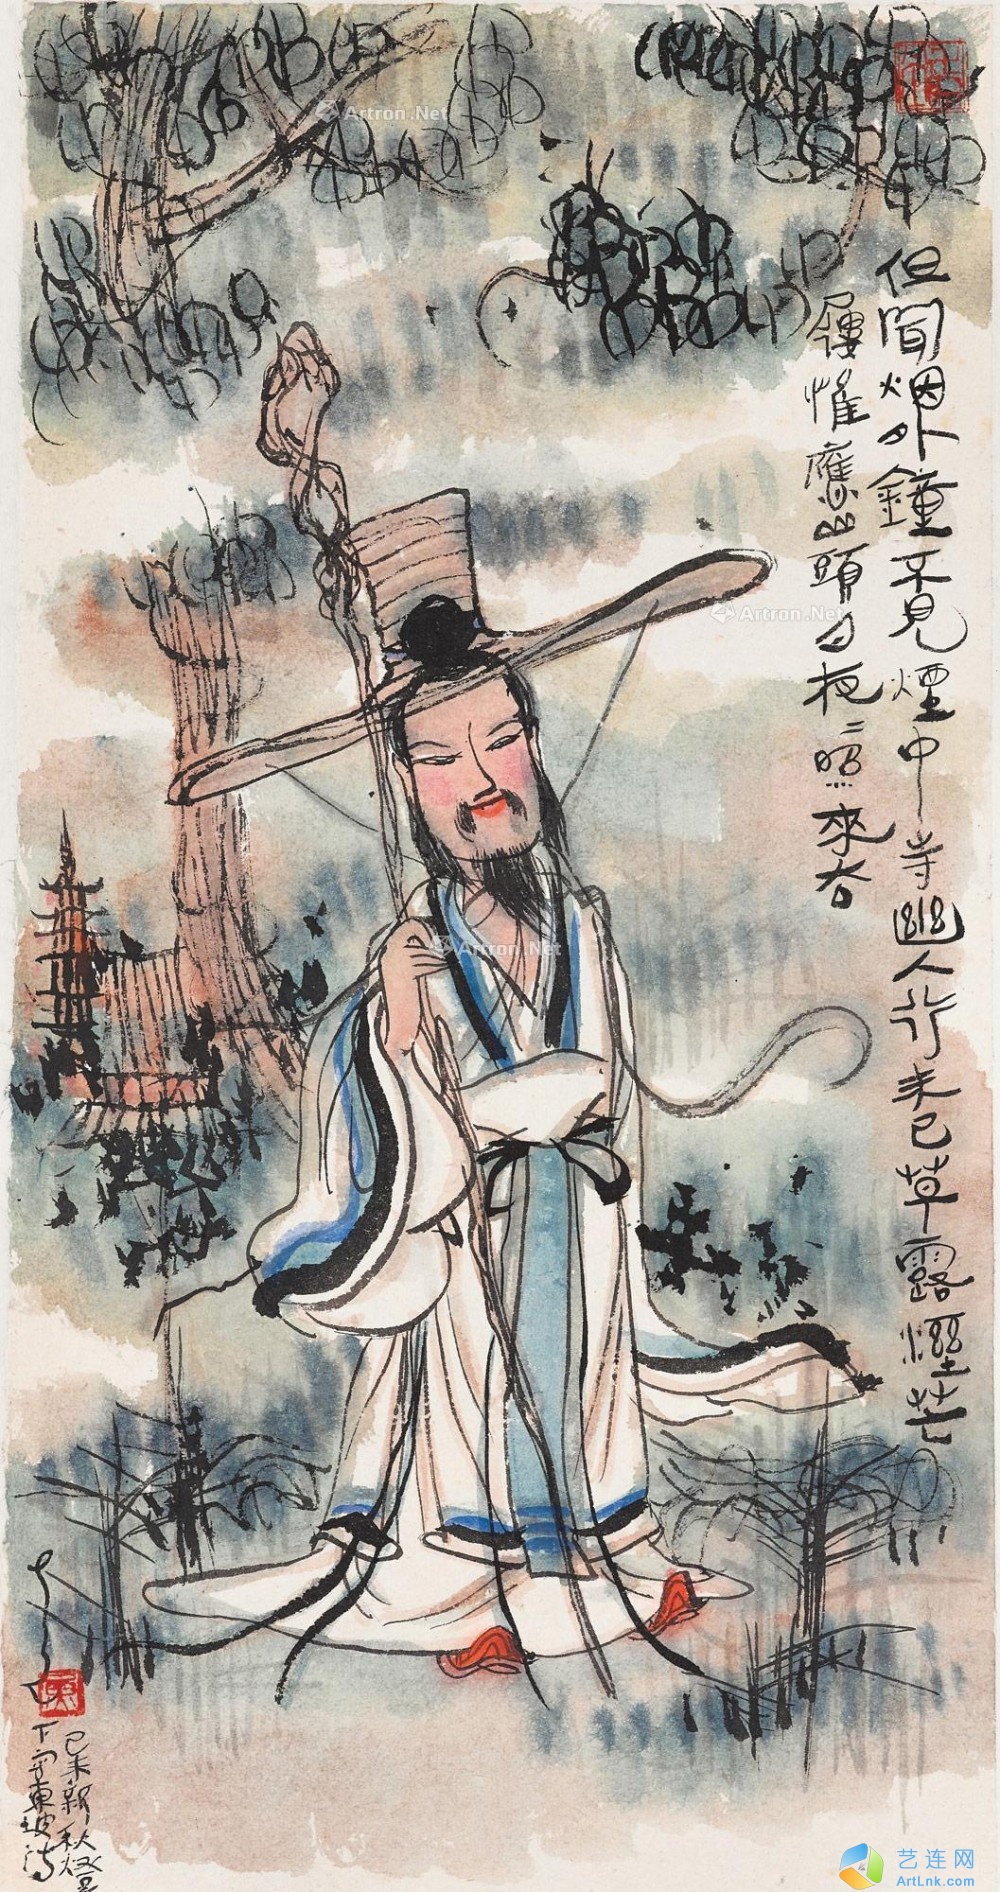 但闻烟外鐘不見煙中寺幽人行未已草露溼芒
屨惟應山頭月夜二照來去
己未新秋燈
下寫東坡詩
Artron.Net
Artron.Net
Artron.Net
艺连网
ArtLnk.com